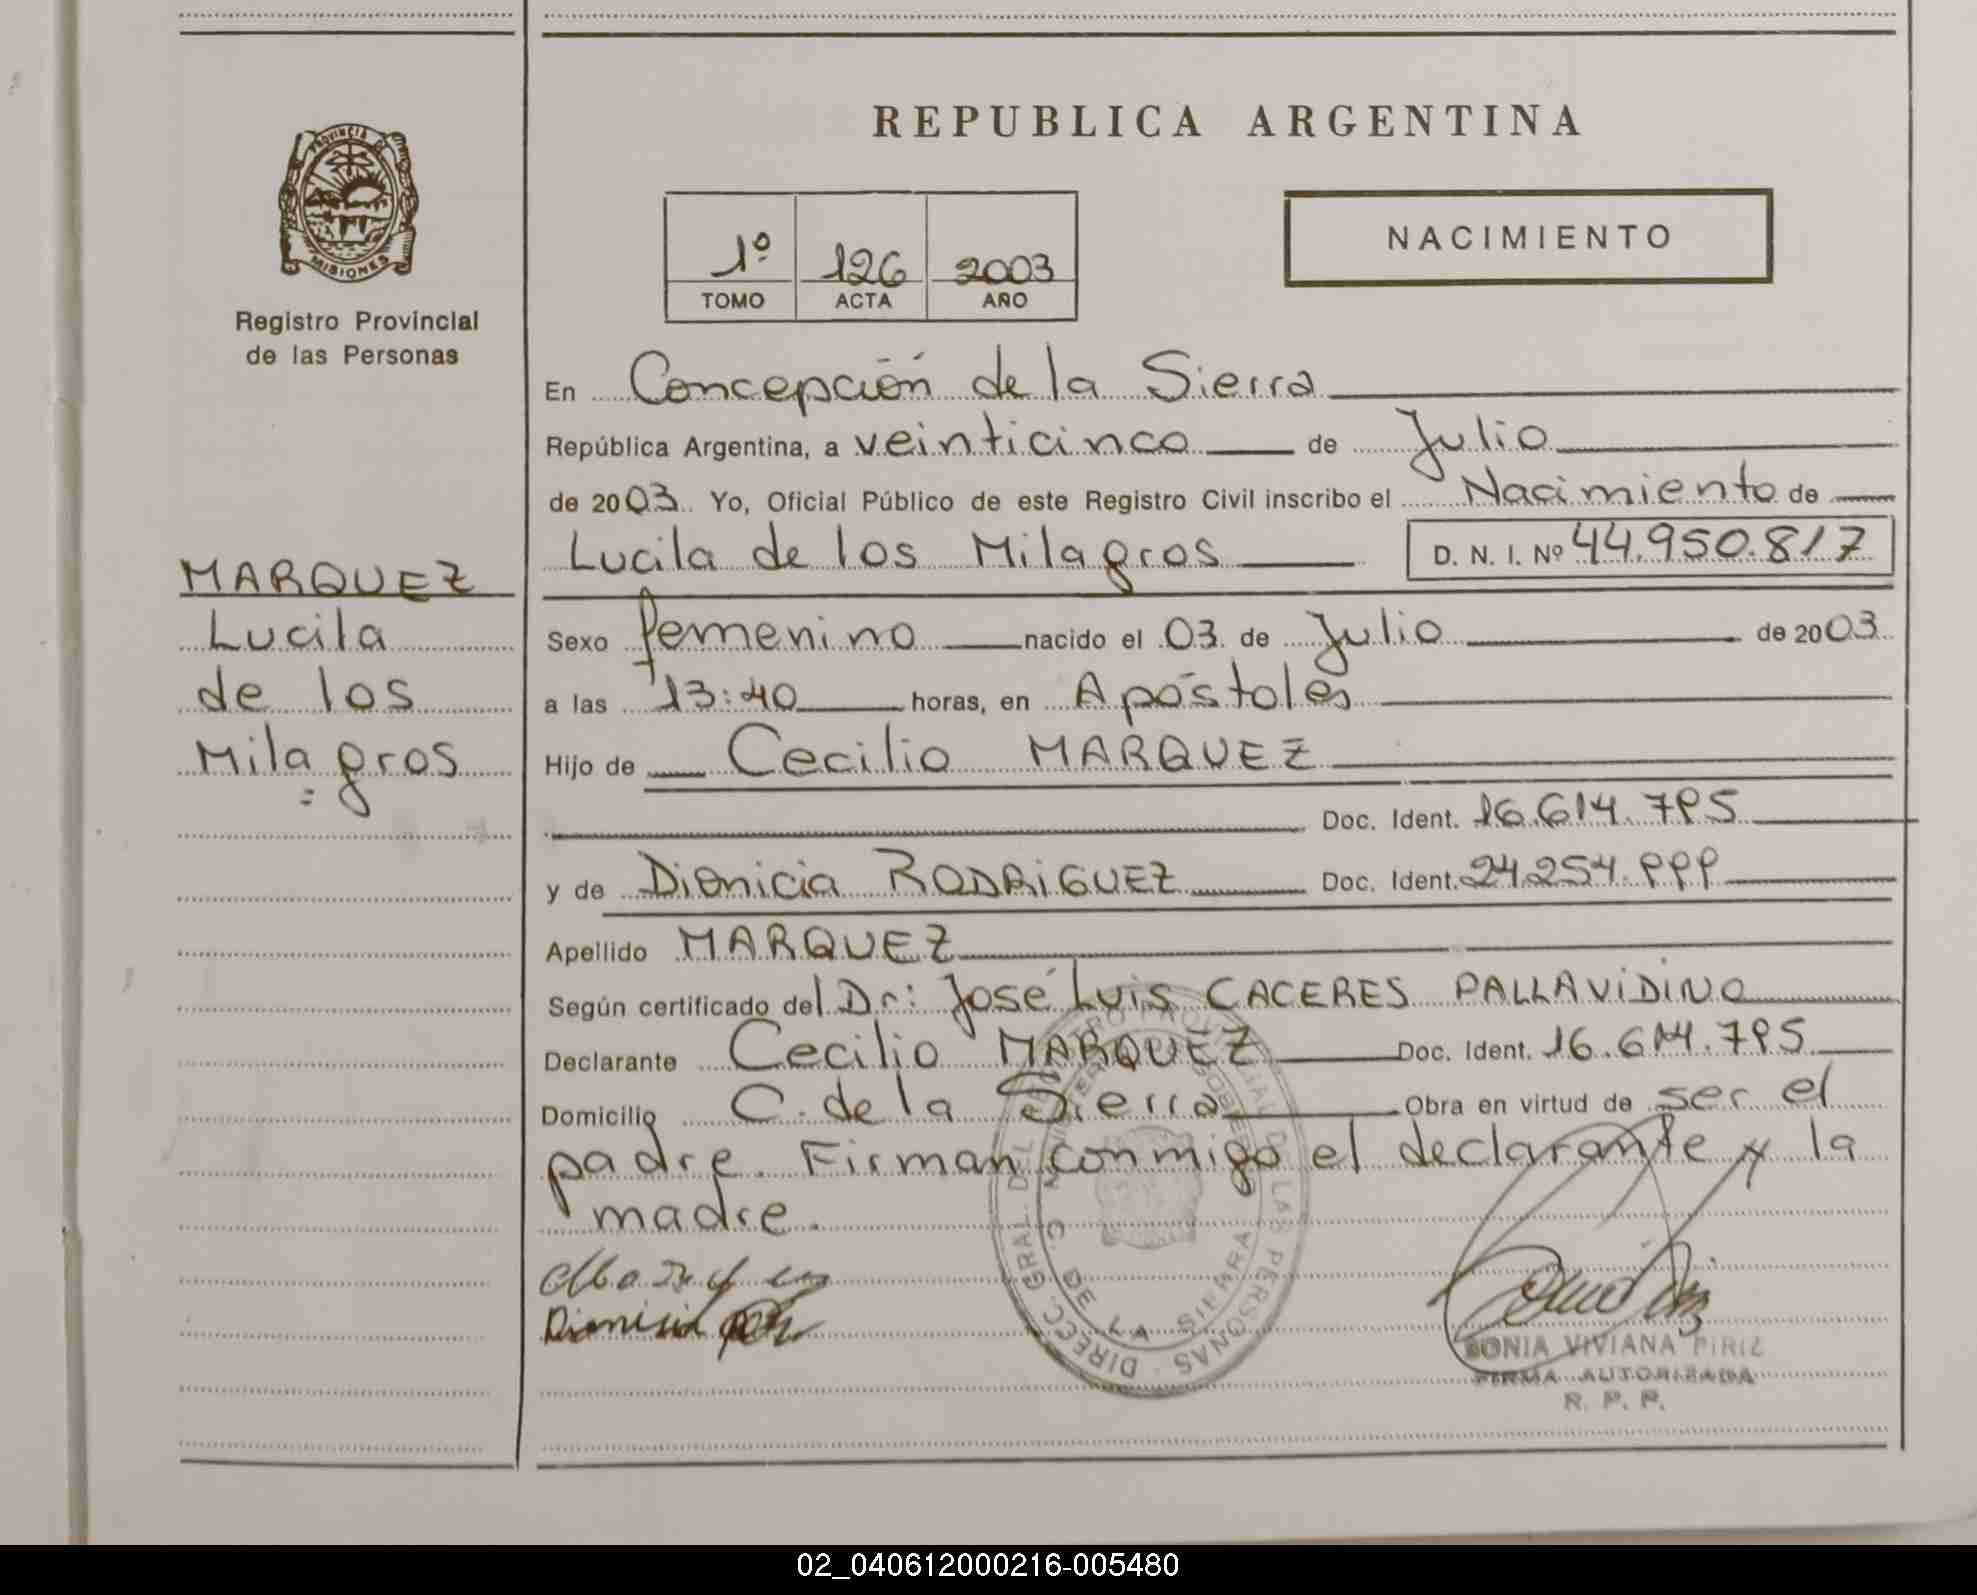 REPUBLICA ARGENTINA
PROVINCIA DE MISIONES
Registro Provincial
de las Personas
1º 126 2003
TOMO ACTA AÑO
NACIMIENTO
En Concepción de la Sierra
República Argentina, a veinticinco de Julio
de 2003 Yo, Oficial Público de este Registro Civil inscribo el Nacimiento de
Lucila de los Milagros D. N. I. Nº 44.950.817
MARQUEZ
Lucila
de los
Milagros
Sexo femenino nacido el 03 de Julio de 2003
a las 13:40 horas, en Apóstoles
Hijo de Cecilio MARQUEZ
Doc. Ident. 16.614.795
y de Dionicia RODRIGUEZ Doc. Ident. 24.254.999
Apellido MARQUEZ
Según certificado del Dr: José Luis CACERES PALLAVIDINO
Declarante Cecilio MARQUEZ Doc. Ident. 16.614.795
Domicilio C. de la Sierra Obra en virtud de ser el
padre. Firman conmigo el declarante y la
madre.
SONIA VIVIANA PIRIZ
FIRMA AUTORIZADA
R. P. P.
02_040612000216-005480